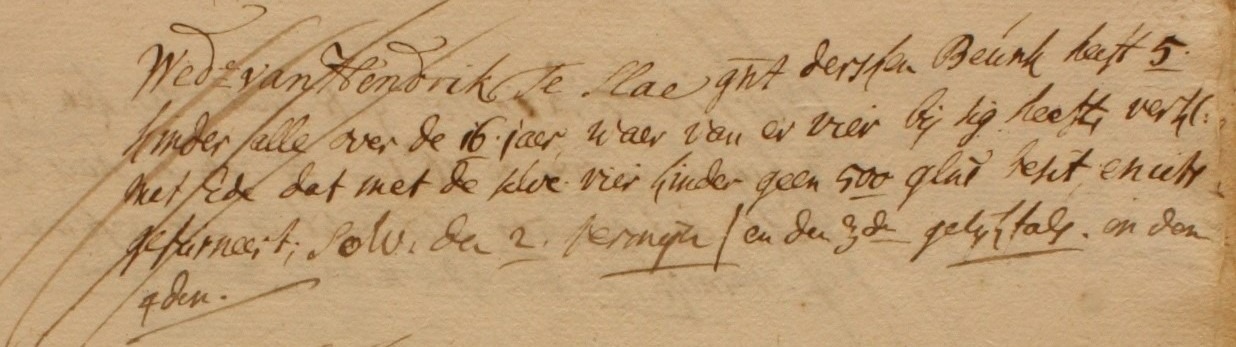 Wed:e van Hendrik Te Slae gnt dersken Beunk heeft 5.
kinder alle over de 16. jaer, waer van er vier bij sig heeft, verkl:
met Ede dat met de selve vier kinder geen 500 glns besit, en iets
gefurneert; Solv. den 2. termijn / en den 3de gelijktals. en den
4den.